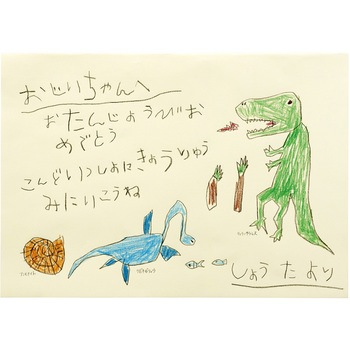 おじいちゃんへ
おたんじょうびお
めでとう
こんどいっしょにきょうりゅう
みたりこうね
しょうたより